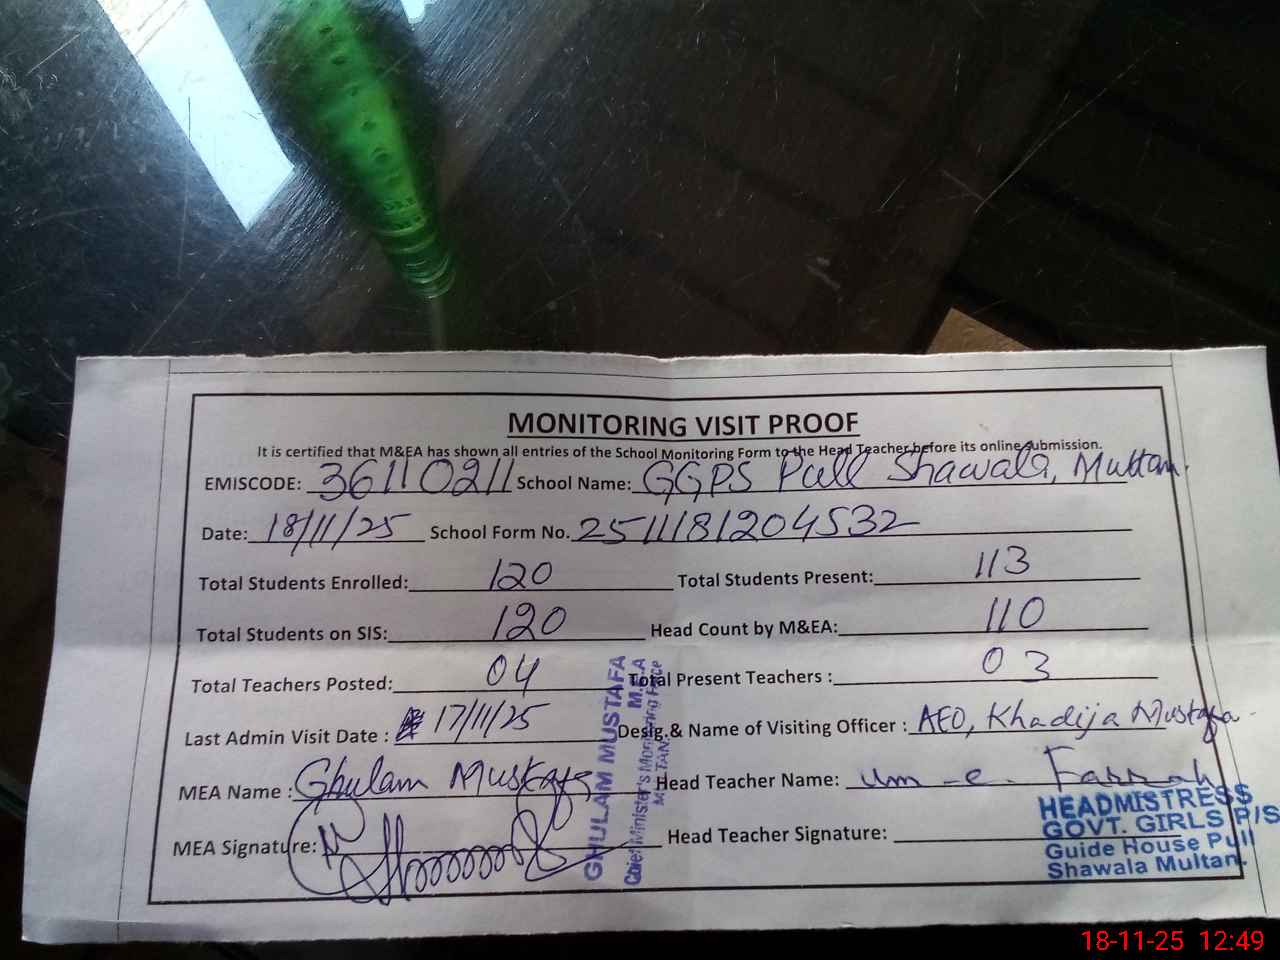 MONITORING VISIT PROOF
It is certified that M&EA has shown all entries of the School Monitoring Form to the Head Teacher before its online submission.
EMISCODE: 36110211 School Name: GGPS Pull Shawala, Multan.
Date: 18/11/25 School Form No. 2511181204532
Total Students Enrolled: 120 Total Students Present: 113
Total Students on SIS: 120 Head Count by M&EA: 110
Total Teachers Posted: 04 Total Present Teachers : 03
Last Admin Visit Date : 17/11/25 Desig.& Name of Visiting Officer : AEO, Khadija Mustafa.
MEA Name : Ghulam Mustafa Head Teacher Name: Um-e. Farrah
MEA Signature: Head Teacher Signature:
GHULAM MUSTAFA
M.E.A
Chief Minister's Monitoring Force
MULTAN.
HEADMISTRESS
GOVT. GIRLS P/S
Guide House Pull
Shawala Multan.
18-11-25 12:49